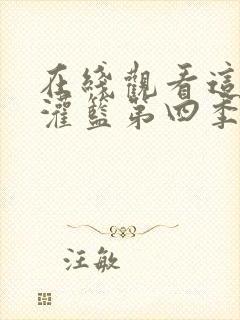 在綫觀看這
灌籃第四季
汪敏